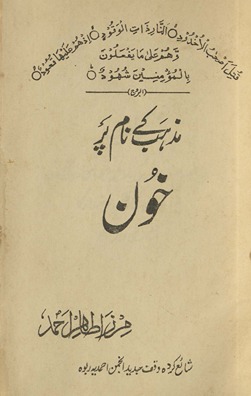 قُتِلَ أَصْحٰبُ الْأُخْدُوْدِ ۝ النَّارِ ذَاتِ الْوَقُوْدِ ۝ اِذْ هُمْ عَلَيْهَا قُعُوْدٌ ۝
وَّهُمْ عَلٰى مَا يَفْعَلُوْنَ
بِالْمُؤْمِنِيْنَ شُهُوْدٌ ۝
مذہب کے نام پر
خُون
مرزا طاہر احمد
شائع کردہ وقف جدید انجمن احمدیہ ربوہ